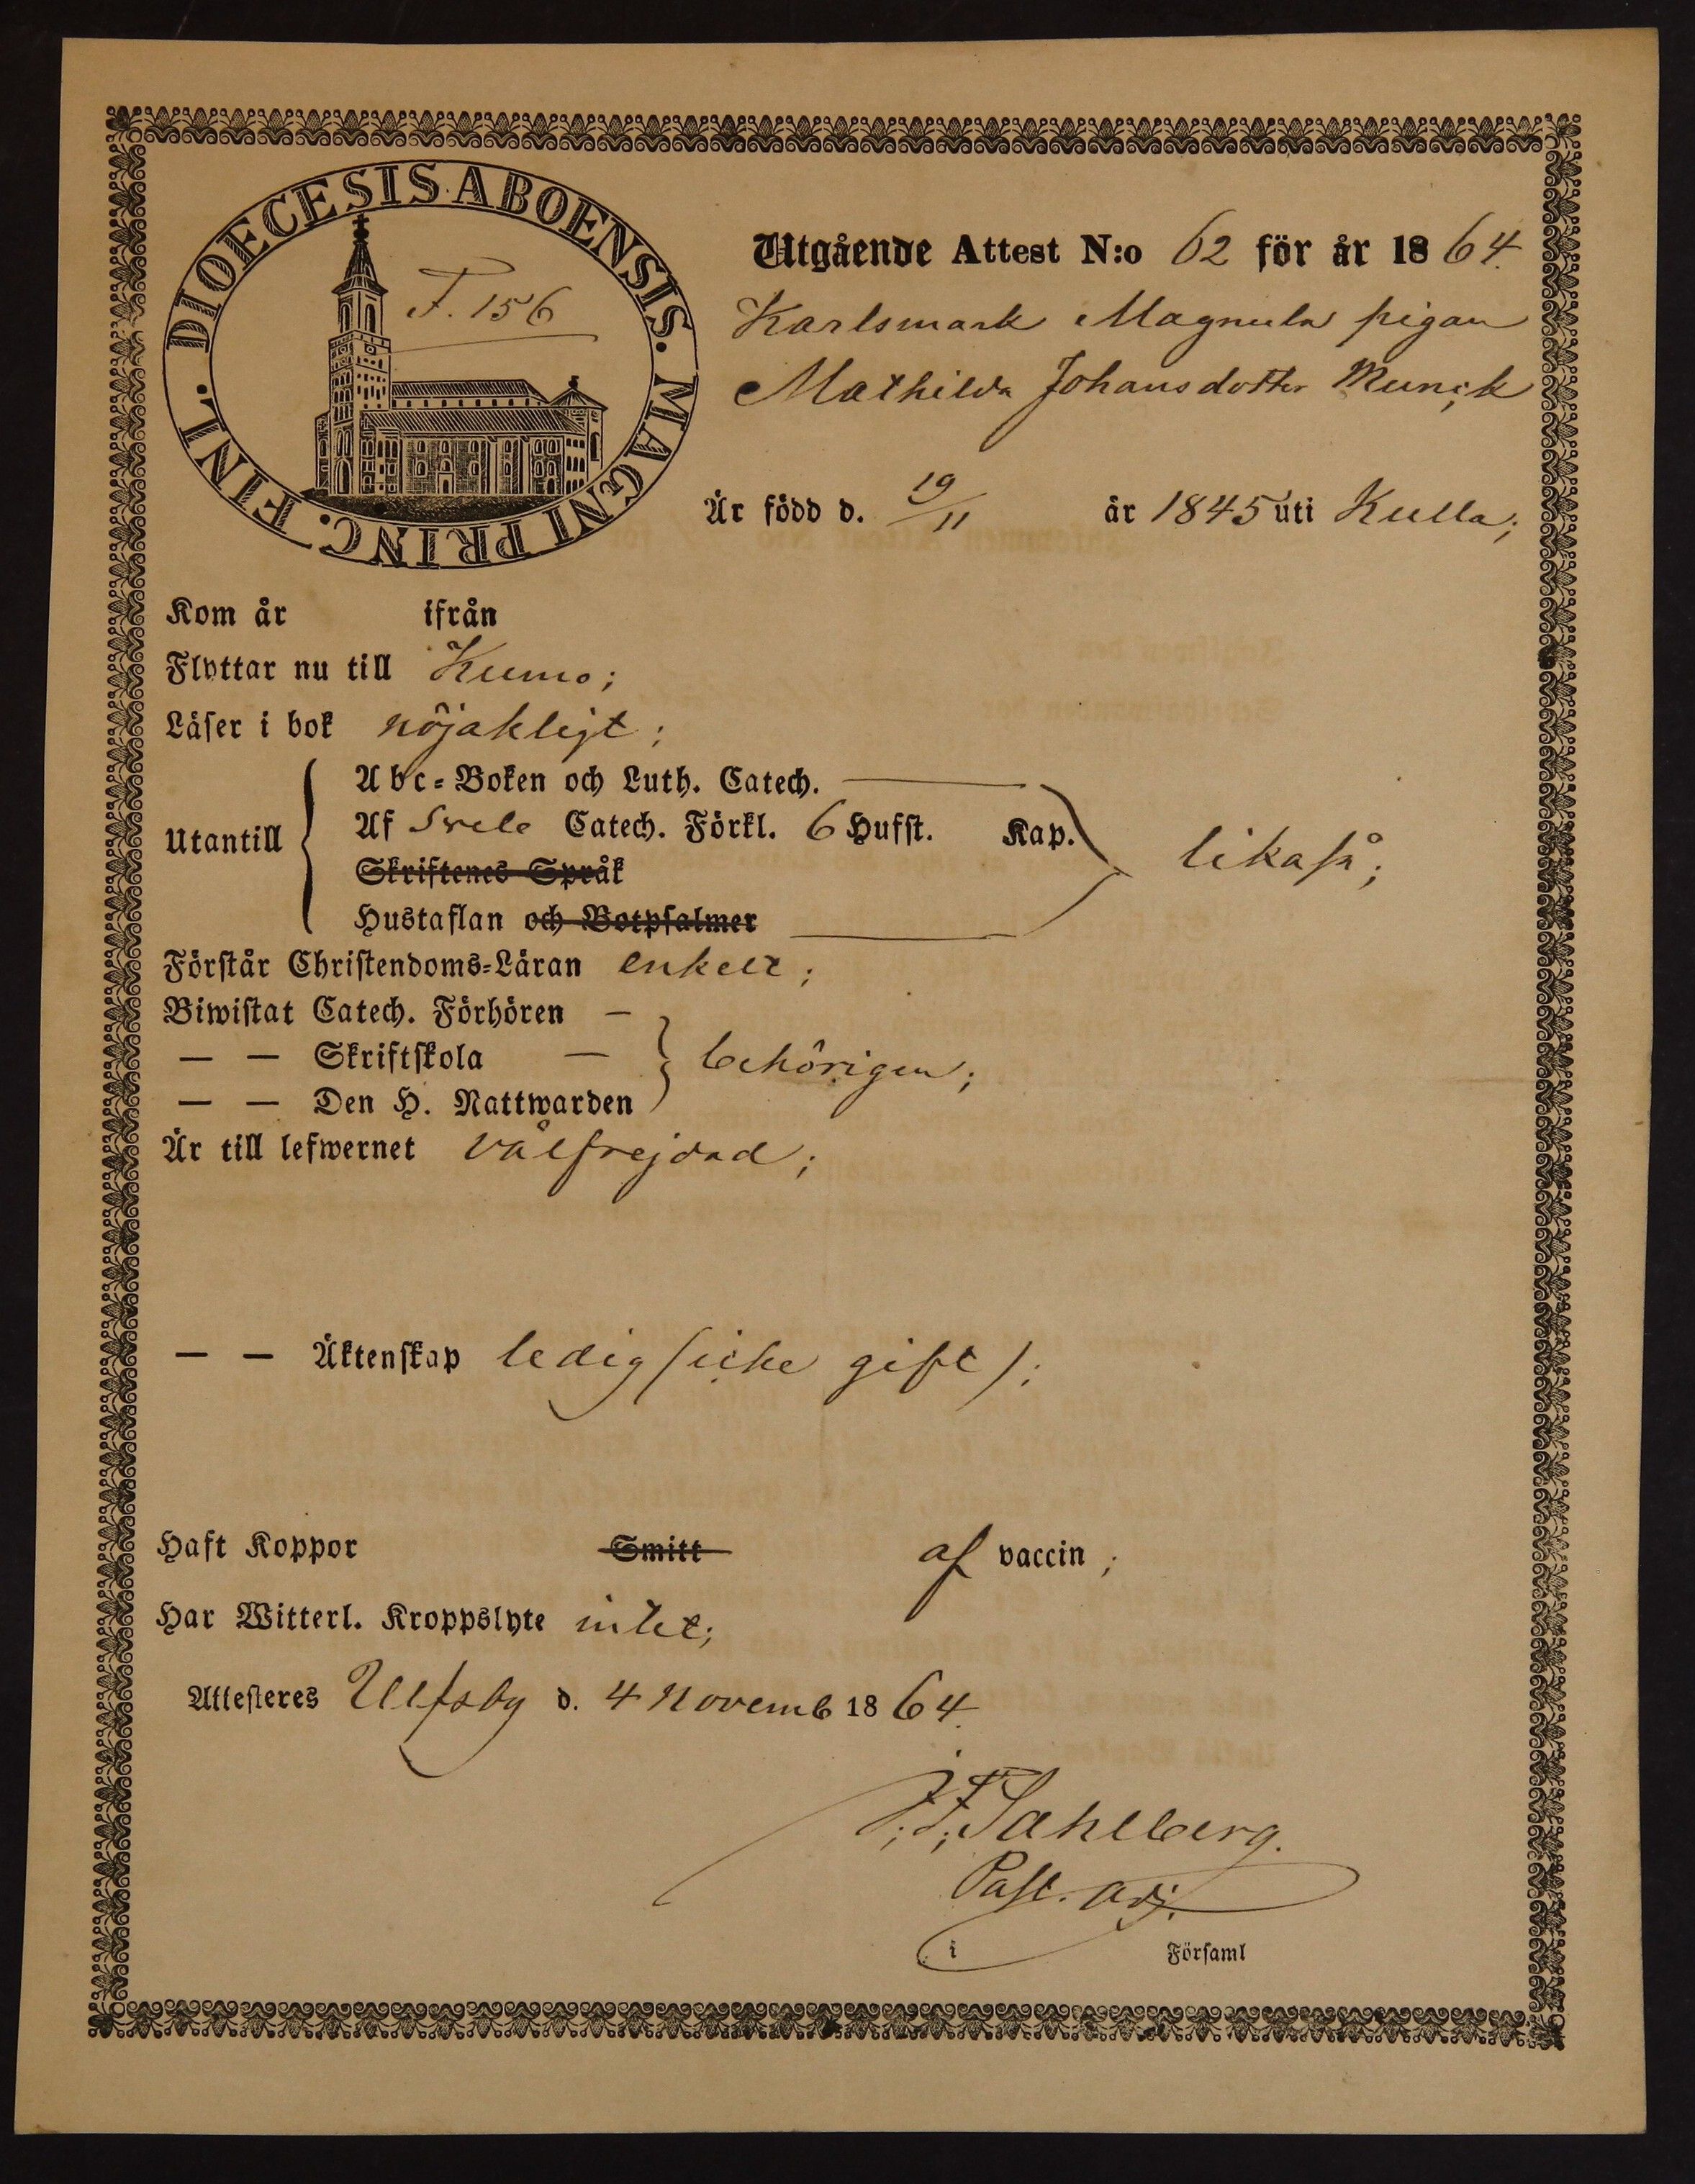 DIOECESIS ABOENSIS. MAGNI PRINC. FINL.
F. 156
Utgående Attest N:o 62 för år 1864.
Karlsmark Magnula pigan
Mathilda Johansdotter Munck
Är född d. 19/11 år 1845 uti Kulla;
Kom år ifrån
Flyttar nu till Kumo;
Läser i bok nöjakligt;
Abc-Boken och Luth. Catech.
Utantill
Af Svele Catech. Förkl. 6 Hufst. Kap.
likaså;
Skriftenes Språk
Hustaflan och Botpsalmer
Förstår Christendoms-Läran enkelt;
Biwistat Catech. Förhören —
— — Skriftskola — behörigen;
— — Den H. Nattwarden
Är till lefwernet välfrejdad;
— — Äktenskap ledig (icke gift);
Haft Koppor Smitt af vaccin;
Har Witterl. Kroppslyte intet;
Attesteres Ulfsby d. 4 Novemb 1864.
J. F. Sahlberg.
Past. adj.
i Församl